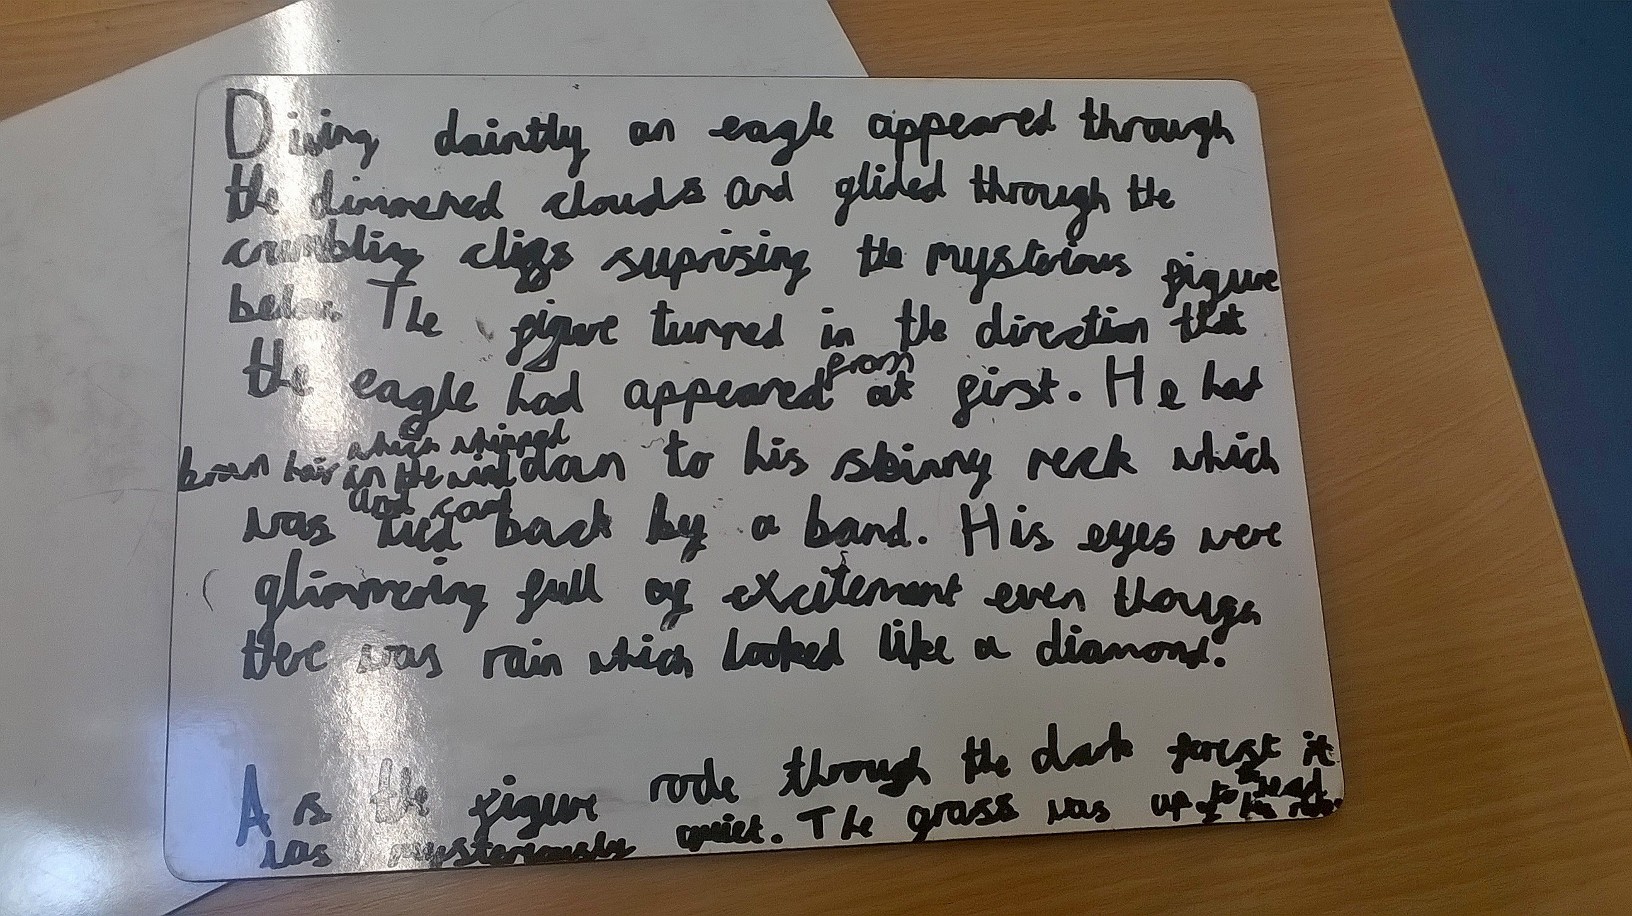 Diving daintly an eagle appeared through
the dimmered clouds and glided through the
crumbling cliffs suprising the mysterious figure
below. The figure turned in the direction that
from
the eagle had appeared at first. He had
which whipped
brown hair in the wind down to his skinny neck which
and
was tied back by a band. His eyes were
glimmering full of excitement even though
there was rain which looked like a diamond.
As the figure rode through the dark forest it
was mysteriously quiet. The grass was up to his